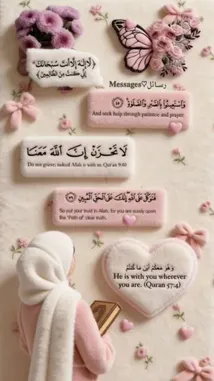 ﴿لَا إِلَٰهَ إِلَّا أَنْتَ سُبْحَانَكَ
إِنِّي كُنْتُ مِنَ الظَّالِمِينَ﴾
Messages♡رسائل
وَاسْتَعِينُوا بِالصَّبْرِ وَالصَّلَاةِ
And seek help through patience and prayer
لَا تَحْزَنْ إِنَّ اللَّهَ مَعَنَا
Do not grieve; indeed Allah is with us. Quran 9:40
فَتَوَكَّلْ عَلَى اللَّهِ إِنَّكَ عَلَى الْحَقِّ الْمُبِينِ
So put your trust in Allah, for you are surely upon
the "Path of" clear truth.
وَهُوَ مَعَكُمْ أَيْنَ مَا كُنْتُمْ
He is with you wherever
you are. (Quran 57:4)